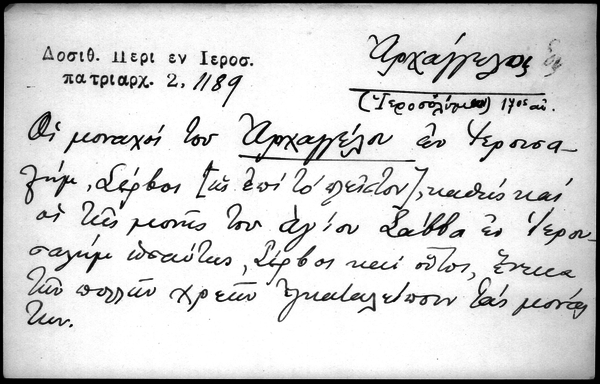 Δοσιθ. Περι εν Ιεροσ.
πατριαρχ. 2, 1189
Ἀρχάγγελος
(Ἱεροσόλυμα) 17ος αἰ.
Οἱ μοναχοί του Ἀρχαγγέλου ἐν Ἱερουσα-
λήμ, Σέρβοι [ὡς ἐπί τό πλεῖστον], καθώς καί
οἱ τῆς μονῆς του ἁγίου Σάββα ἐν Ἱερου-
σαλήμ ὡσαύτως, Σέρβοι καί οὗτοι, ἕνεκα
τῶν πολλῶν χρεῶν ἐγκαταλείπουν τάς μονάς
των.